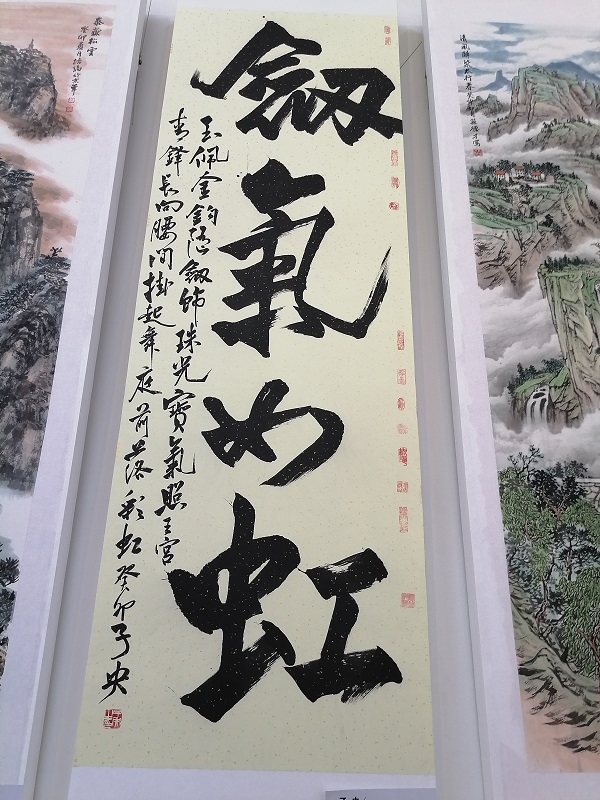 劔氣如虹
玉佩金鈎隱劔飾珠光寶氣照王宮
青鋒長向腰間掛起舞庭前落彩虹 癸卯子央
泰嶽松雲